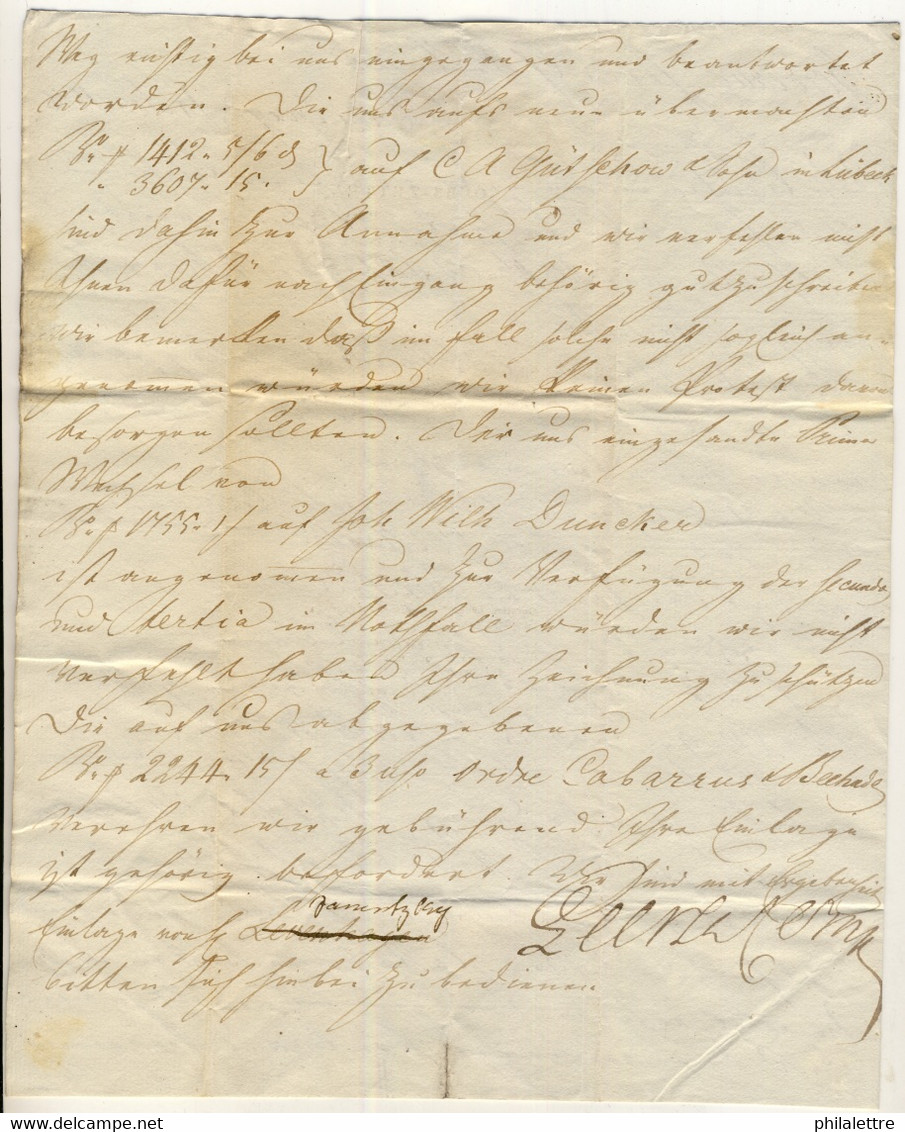 Weg richtig bei uns eingegangen und beantwortet
worden. Die uns aufs neue übermachten
1412 " 5/6 d } auf C A Gütschow & Sohn in Lübeck
" 3607 " 15.
sind dahin zur Annahme und wir verfehlen nicht
Ihnen dafür nach Eingang behörig gutzuschreiben
wir bemerken daß im Fall solche nicht sogleich an-
genommen würden wir keinen Protest davon
besorgen sollten. Der uns eingesandte Prima
Wechsel von
1755 " 1/ auf Joh Wilh Duncker
ist angenommen und zur Verfügung der Secunda
und Tertia im Nothfall würden wir nicht
verfehlt haben Ihre Zeichnung zu schützen
Die auf uns abgegebenen
2244 " 15/ a 3 uso Ordre Cabarrus &
verehren wir gebührend. Ihre Einlage
ist gehörig befördert Wir sind mit Ergebenheit
Einlage von
bitten Sich hiebei zu bedienen.
delcampe.net
philalettre